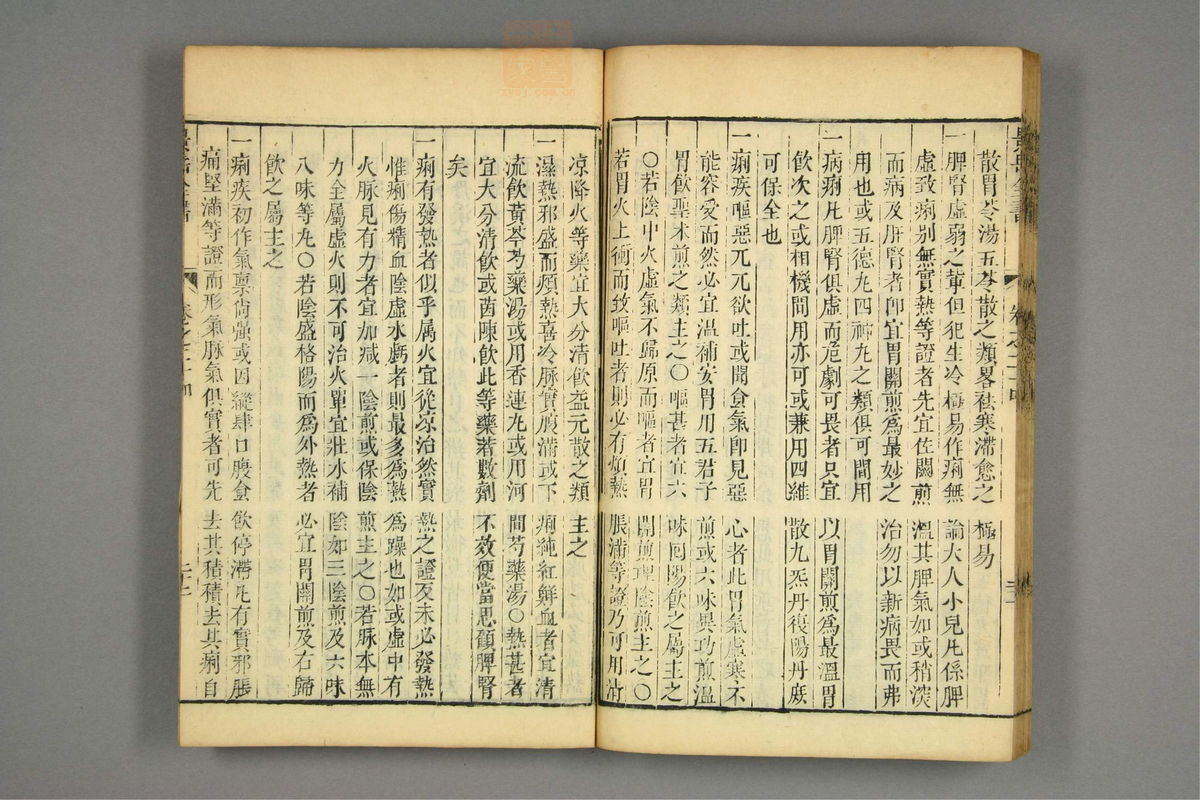 散胃苓湯五苓散之類畧祛寒滯愈之極易
一脾腎虛弱之輩但犯生冷極易作痢無論大人小兒凡係脾
虛致痢别無實熱等證者先宜佐關煎溫其脾氣如或稍深
而病及肝腎者即宜胃關煎為最妙之治勿以新病畏而弗
用也或五德丸四神丸之類俱可間用
一病痢凡脾腎俱虛而危劇可畏者只宜以胃關煎為最溫胃
飲次之或相機間用亦可或兼用四維散九炁丹復陽丹庶
可保全也
一痢疾嘔惡兀兀欲吐或聞食氣即見惡心者此胃氣虛寒不
能容受而然必宜溫補安胃用五君子煎或六味異功煎溫
胃飲聖术煎之類主之〇嘔甚者宜六味囘陽飲之屬主之
〇若陰中火虛氣不歸原而嘔者宜胃關煎理陰煎主之〇
若胃火上衝而致嘔吐者則必有煩熱脹滿等證乃可用清
凉降火等藥宜大分清飲益元散之類主之
一濕熱邪盛而煩熱喜冷脉實腹滿或下痢純紅鮮血者宜清
流飲黃芩芍藥湯或用香連丸或用河間芍藥湯〇熱甚者
宜大分清飲或茵陳飲此等藥若數劑不效便當思顧脾腎
矣
一痢有發熱者似乎属火宜從凉治然實熱之證反未必發熱
惟痢傷精血陰虛水虧者則最多為熱為躁也如或虛中有
火脉見有力者宜加減一陰煎或保陰煎主之〇若脉本無
力全屬虛火則不可治火單宜壯水補陰如三陰煎及六味
八味等丸〇若陰盛格陽而為外熱者必宜胃關煎及右歸
飲之屬主之
一痢疾初作氣禀尚强或因縱肆口腹食飲停滯凡有實邪脹
痛堅滿等證而形氣脉氣俱實者可先去其積積去其痢自
景岳全書